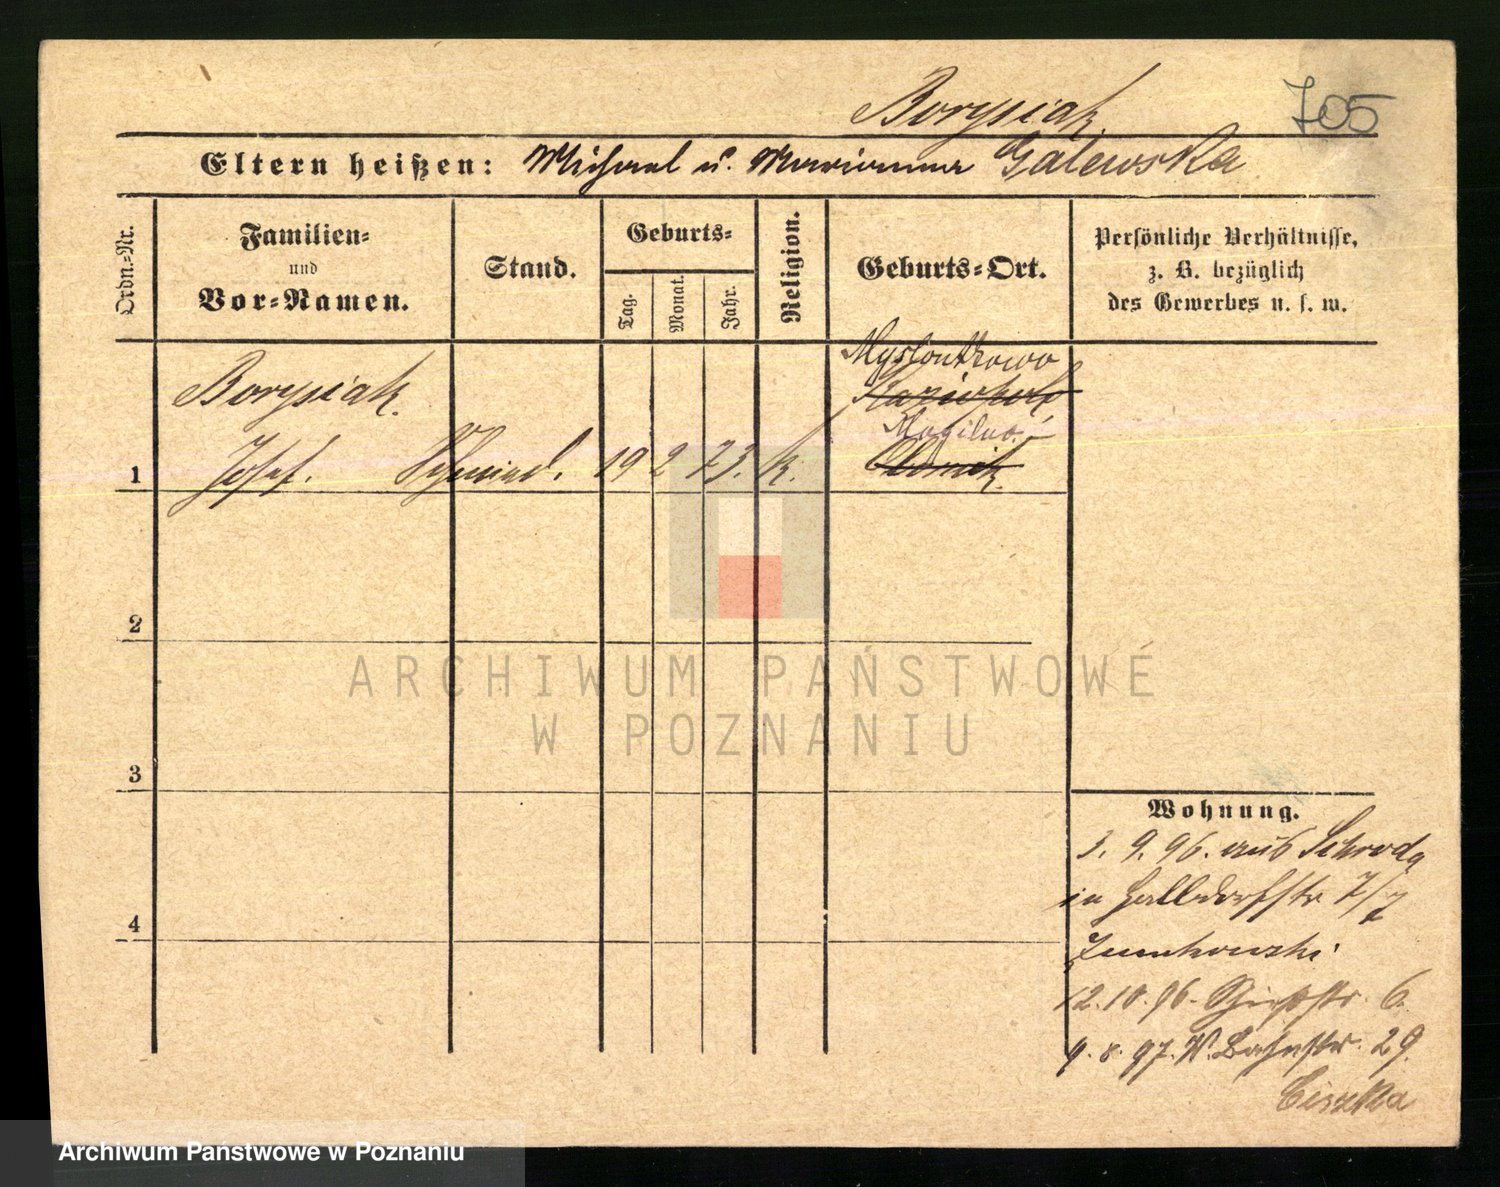 Borysiak.
705
Eltern heißen: Michael u. Marianna Galewska
Ordn.-Nr.
Familien-
und
Vor-Namen.
Stand.
Geburts-
Tag.
Monat.
Jahr.
Religion.
Geburts-Ort.
Persönliche Verhältnisse,
z. B. bezüglich
des Gewerbes u. s. w.
Borysiak.
Mogilno.
1 Josef. Schmied. 19 2 73. k.
2
3
4
Wohnung.
3. 9. 96. aus Schroda
in Halldorfstr 7/7
12.10.96. Schießstr. 6.
9. 8. 97. W. Bahnstr. 29.
Ciszka
ARCHIWUM PAŃSTWOWE
W POZNANIU
Archiwum Państwowe w Poznaniu